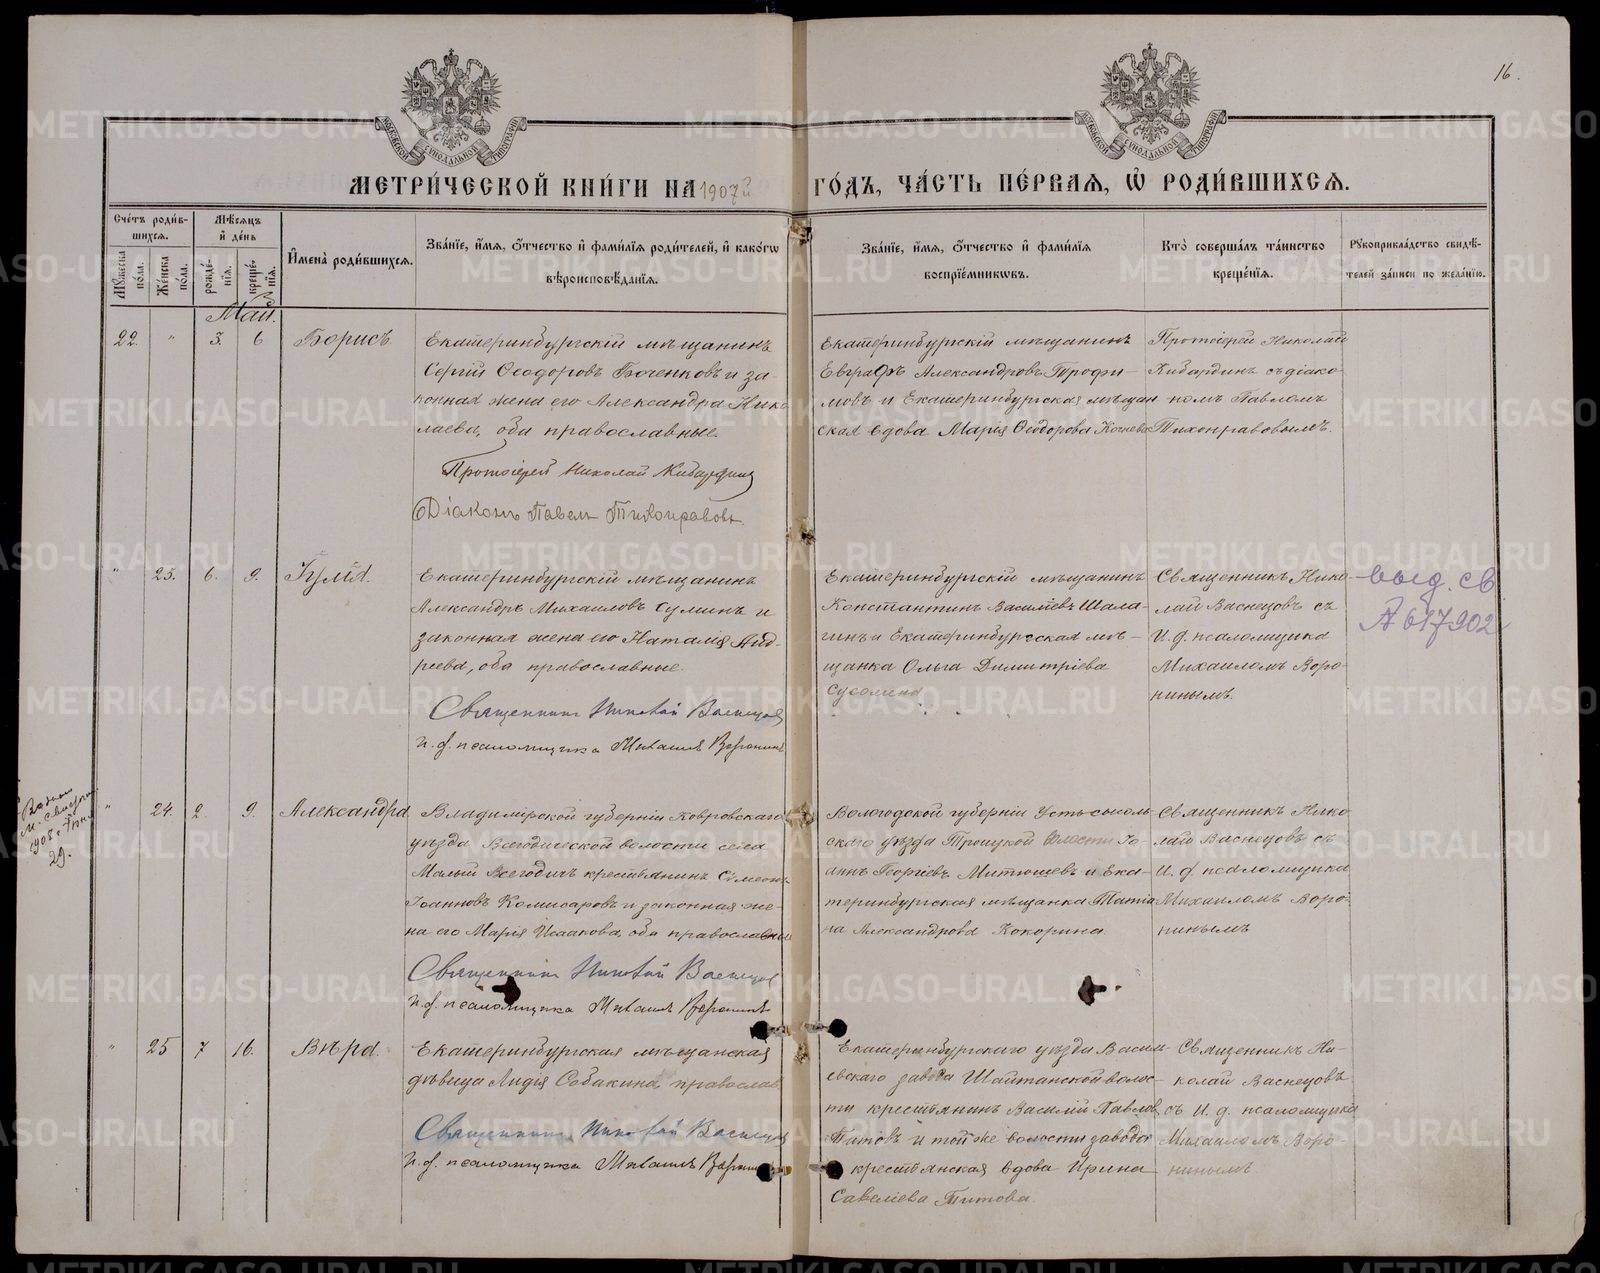 16.
МОСКОВСКОЙ СѴНОДАЛЬНОЙ ТИПОГРАФІИ
МОСКОВСКОЙ СѴНОДАЛЬНОЙ ТИПОГРАФІИ
МЕТРИ́ЧЕСКОЙ КНИ́ГИ НА 1907й ГО́ДЪ, ЧА́СТЬ ПЕ́РВАЯ, Ѡ РОДИ́ВШИХСЯ.
Сче́тъ роди́в-
шихся.
Му́жеска по́ла.
Же́нска по́ла.
Мѣ́сяцъ
и де́нь
рожде́-
нїя.
креще́-
нїя.
И҆мена̀ роди́вшихся.
Зва́нїе, и҆́мя, ѻ҆́тчество и҆ фами́лїя роди́телей, и҆ како́гѡ
вѣроисповѣ́данїя.
Зва́нїе, и҆́мя, ѻ҆́тчество и҆ фами́лїя
воспрїе́мникѡвъ.
Кто̀ соверша́лъ та́инство
креще́нїя.
Рꙋкоприкла́дство свидѣ́-
телей за́писи по жела́нїю.
Май.
22. " 3. 6
Борисъ
Екатеринбургскій мѣщанинъ
Сергій Ѳеодоровъ Боченковъ и за-
конная жена его Александра Нико-
лаева, оба православные.
Протоіерей Николай Кибардинъ
Діаконъ Павелъ Тихонравовъ.
Екатеринбургскій мѣщанинъ
Евграфъ Александровъ Трофи-
мовъ и Екатеринбургская мѣщан
ская вдова Марія Ѳеодорова
Протоіерей Николай
Кибардинъ съ діако-
номъ Павломъ
Тихонравовымъ.
" 23. 6. 9.
Іулія.
Екатеринбургскій мѣщанинъ
Александръ Михаиловъ Суминъ и
законная жена его Наталія Анд-
реева, оба православные.
Священникъ Николай Васнецовъ
и. д. псаломщика Михаилъ Воронинъ
Екатеринбургскій мѣщанинъ
Константинъ Василіевъ Шала-
гинъ и Екатеринбургская мѣ-
щанка Ольга Димитріева
Священникъ Нико-
лай Васнецовъ съ
И. д. псаломщика
Михаиломъ Воро-
нинымъ.
выд. св
А 617902
1908 г.
29.
" 24. 2 9.
Александра
Владимірской губерніи Ковровскаго
уѣзда Всегодической волости села
Малый Всегодичъ крестьянинъ Симеонъ
Іоанновъ Комисаровъ и законная же-
на его Марія Исаакова, оба православные
Священникъ Николай Васнецовъ
и. д. псаломщика Михаилъ Воронинъ
Вологодской губерніи Устьсысоль
скаго уѣзда Троицкой волости Іо-
аннъ Георгіевъ Митюшевъ и Ека-
теринбургская мѣщанка Татіа
на Александрова Кокорина
Священникъ Нико
лай Васнецовъ съ
И. д. псаломщика
Михаиломъ Воро-
нинымъ
" 25 7 16.
Вѣра.
Екатеринбургская мѣщанская
дѣвица Лидія Собакина, православ
Священникъ Николай Васнецовъ
и. д. псаломщика Михаилъ Воронинъ
Екатеринбургскаго уѣзда Васили-
евскаго завода Шайтанской волос-
ти крестьянинъ Василій Павловъ
Титовъ и той же волости и завода
крестьянская вдова Ирина
Савеліева Титова.
Священникъ Ни-
колай Васнецовъ
съ И. д. псаломщика
Михаиломъ Воро-
нинымъ.
METRIKI.GASO-URAL.RU